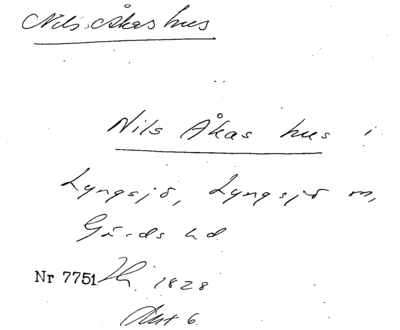 Nils Åkas hus
Nils Åkas hus i
Lyngsjö, Lyngsjö sn,
Gärds hd.
Nr 7751 1828
Akt 6.